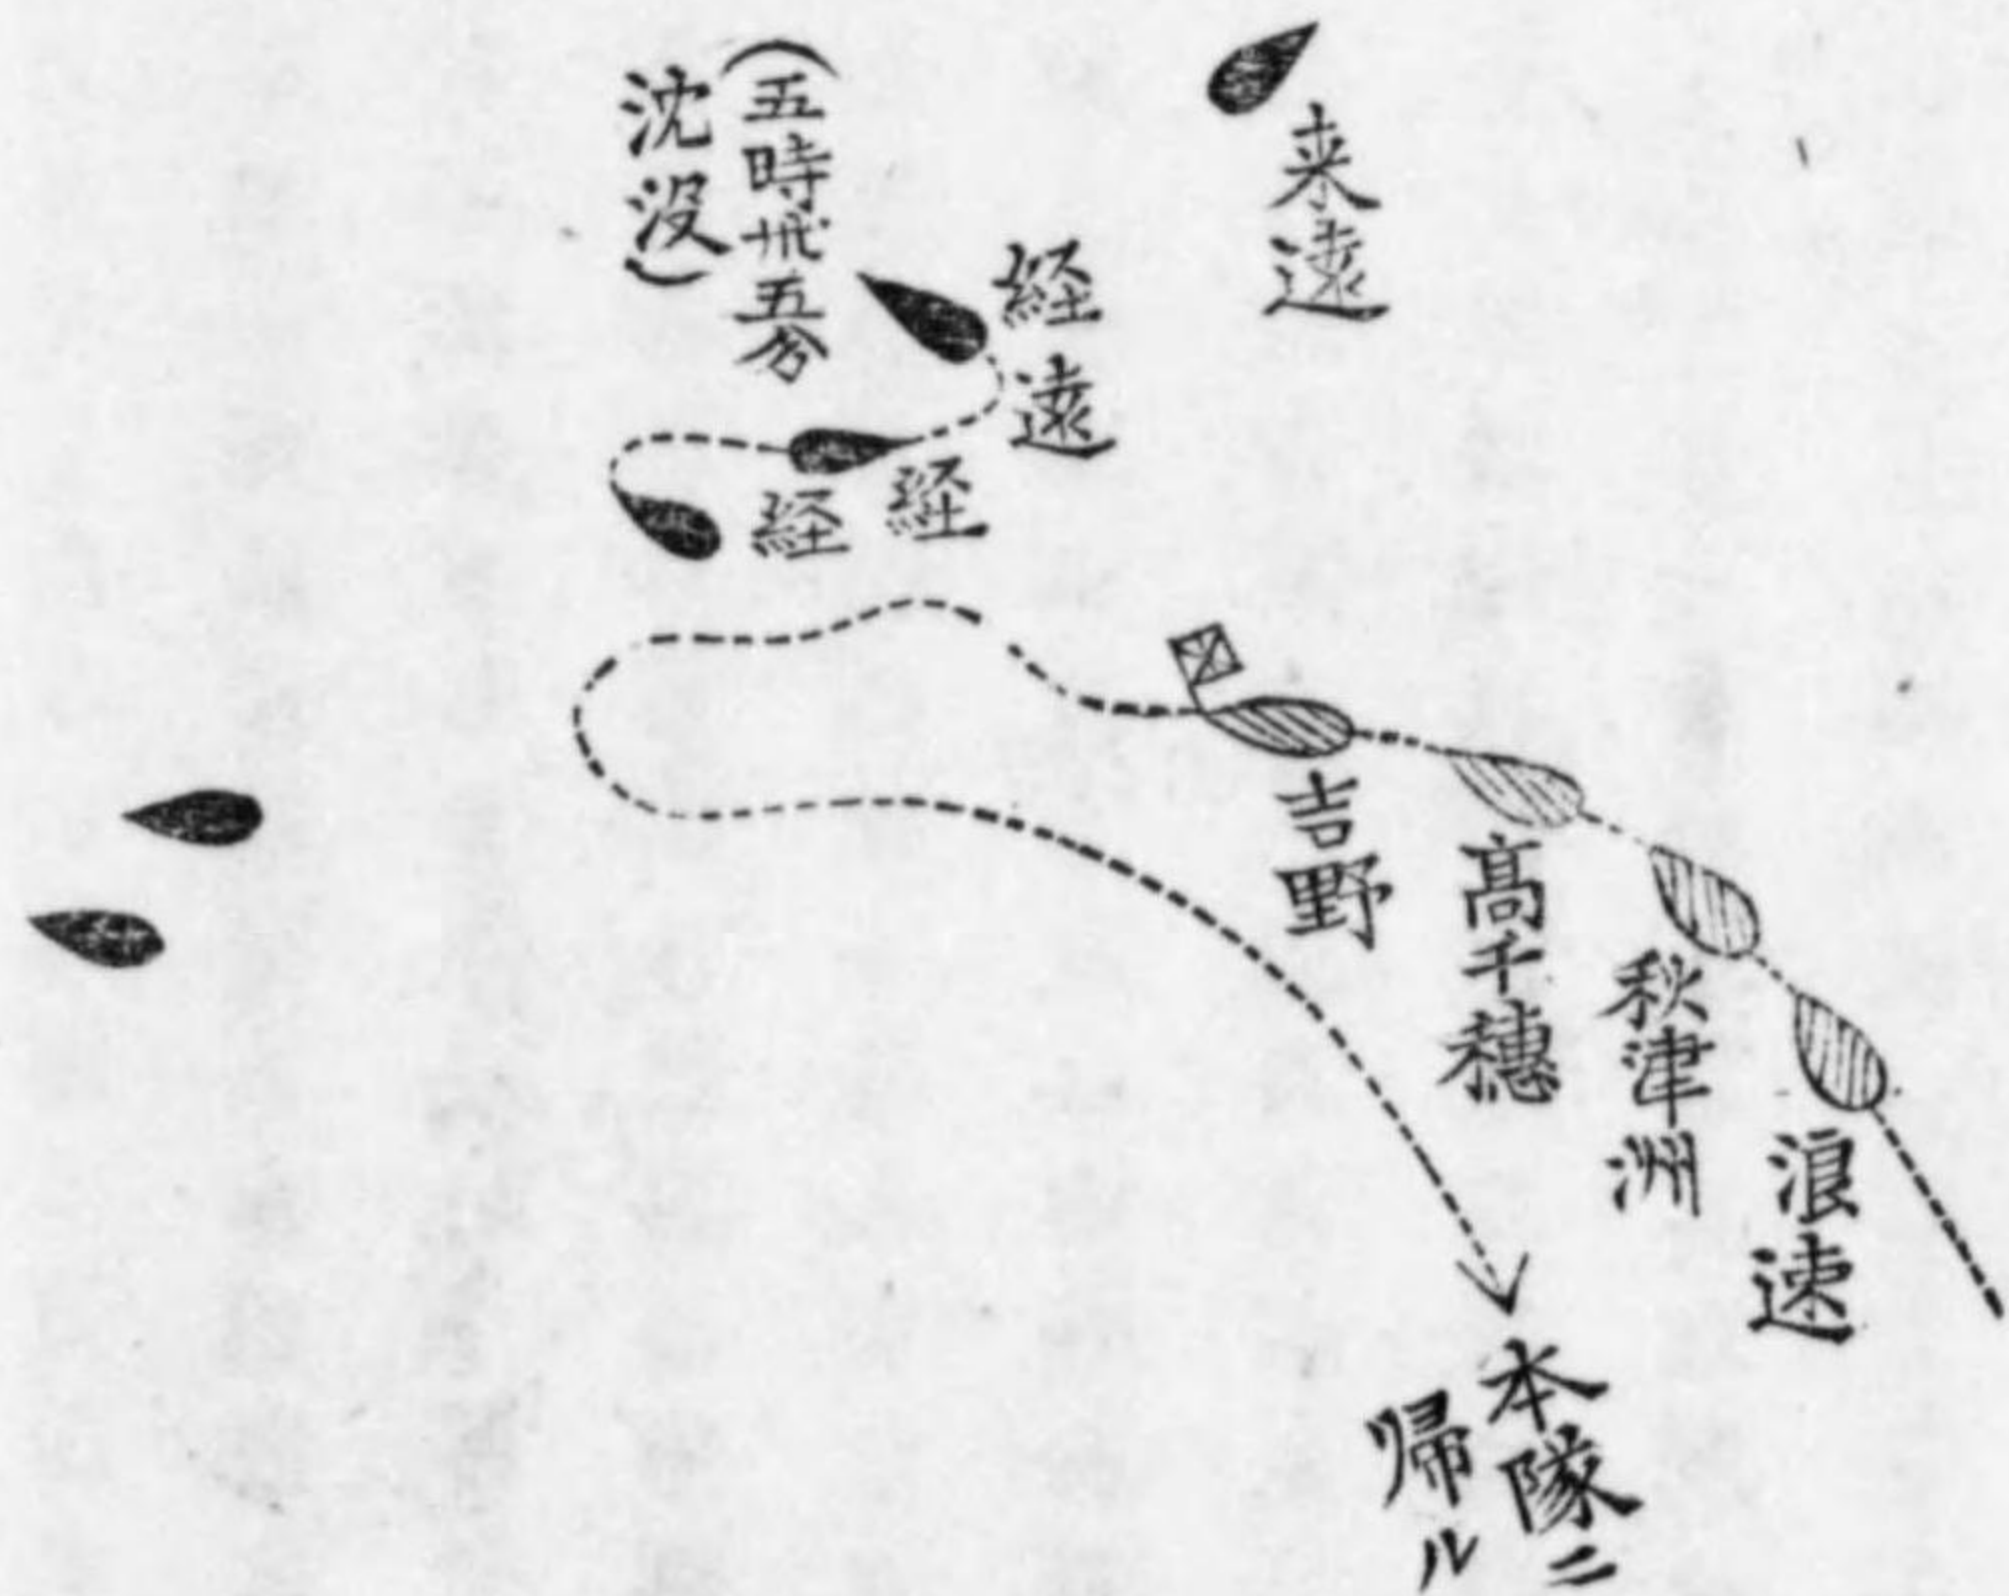 来遠
経遠
(五時
五分
沈没)
経
経
吉野
髙千穂
秋津洲
浪速
本隊ニ
帰ル